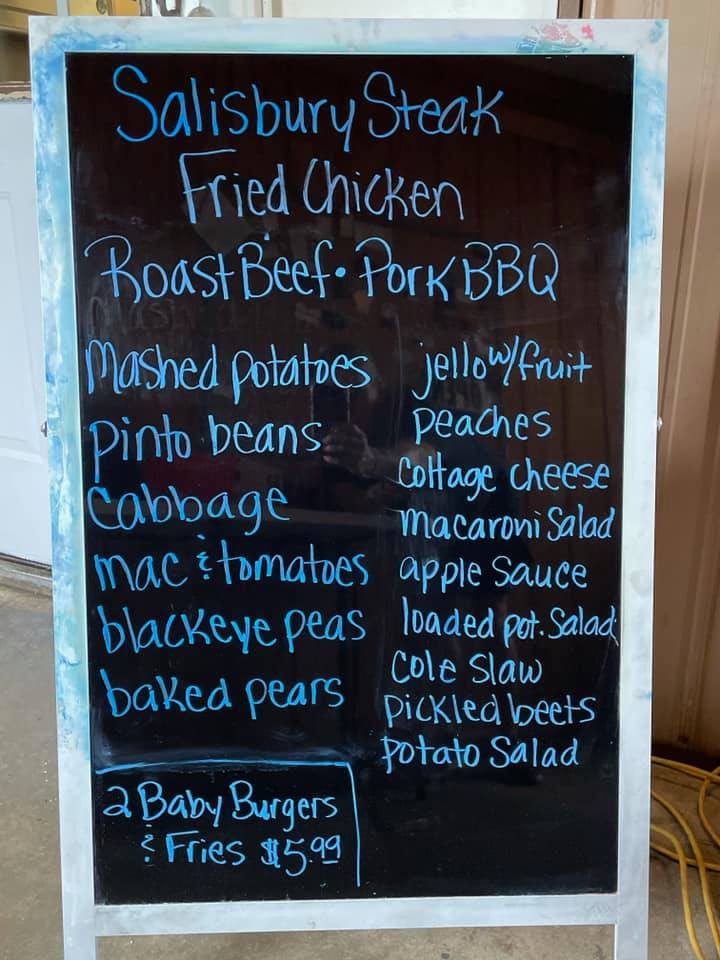 Salisbury Steak
Fried Chicken
Roast Beef • Pork BBQ
Mashed potatoes
pinto beans
cabbage
mac & tomatoes
blackeye peas
baked pears
jello w/ fruit
peaches
cottage cheese
macaroni Salad
apple sauce
loaded pot. Salad
Cole Slaw
pickled beets
potato Salad
2 Baby Burgers
& Fries $5.99